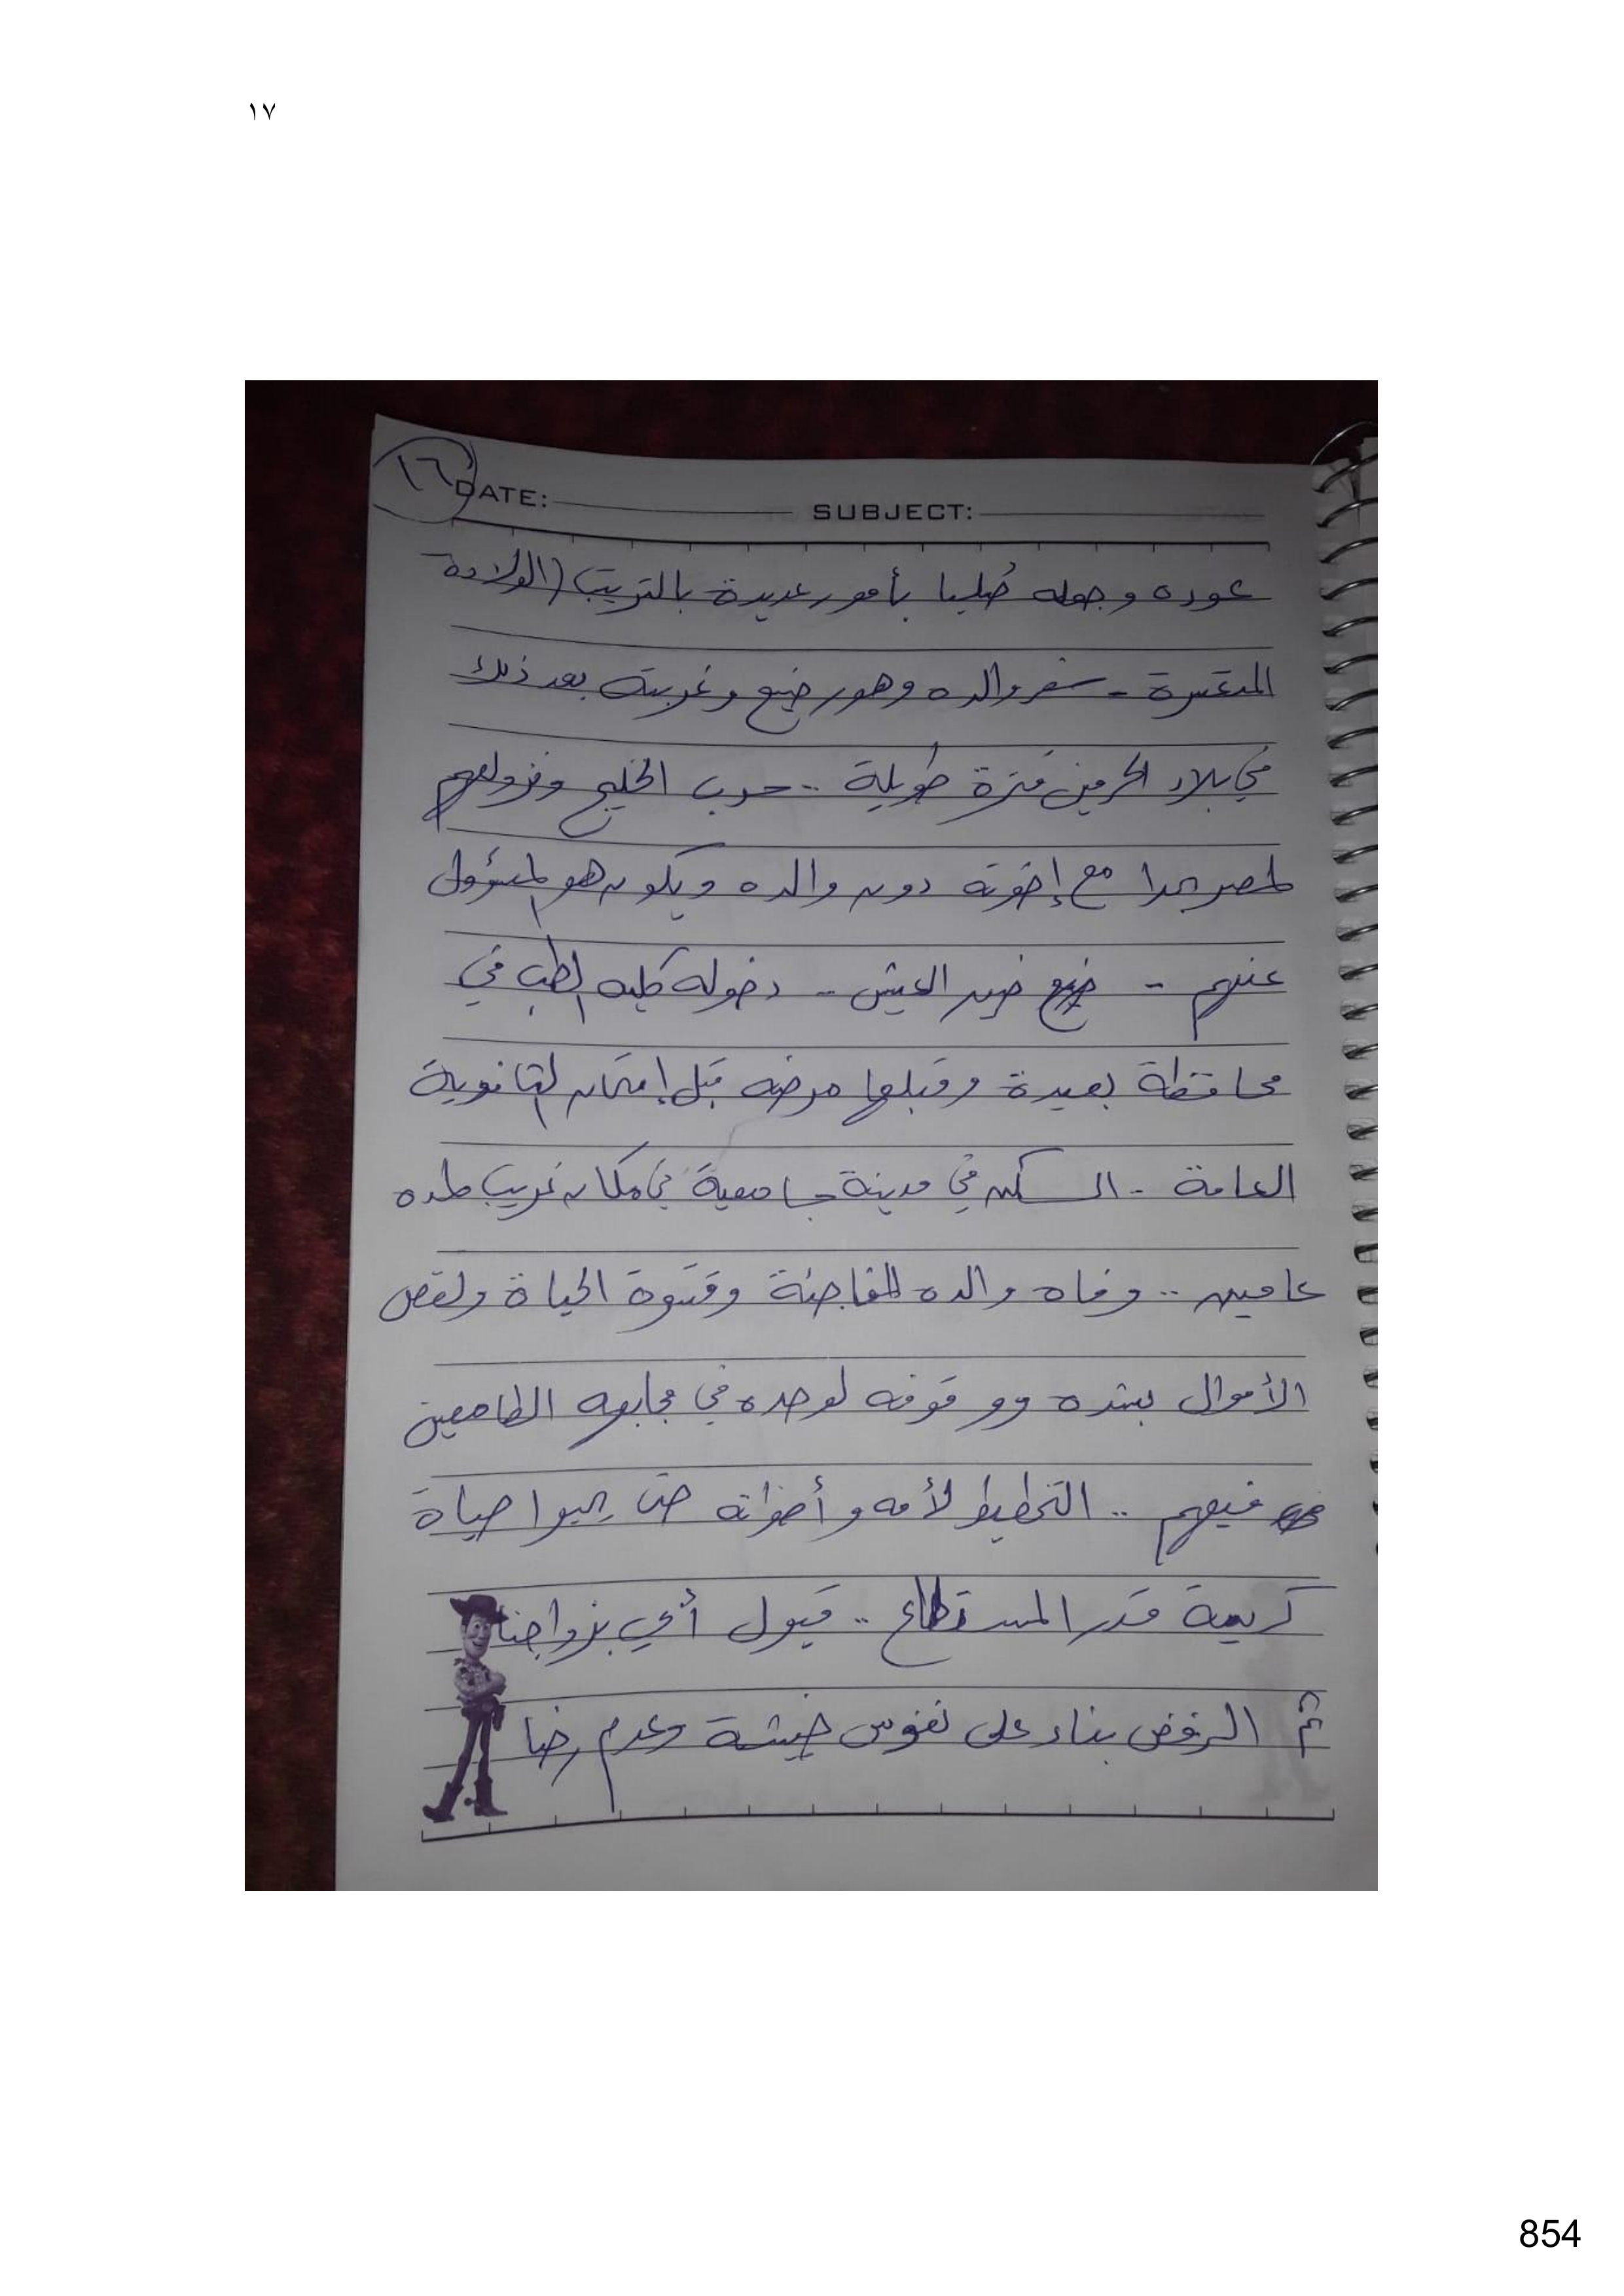 ١٧
١٦
DATE:
SUBJECT:
عوده وجعله صُلبا بأمور عديدة بالترتيب (الولادة
المتعسرة - سفر والده وهو رضيع وغربته بعد ذلك
في بلاد الحرمين فترة طويلة .. حرب الخليج ونزولهم
لمصر مع إخوته دون والده ويكون هو المسؤول
عنهم .. العيش .. دخوله كليه الطب في
محافظة بعيدة وقبلها مرضه قبل إمتحان الثانوية
العامة - السكن في مدينة جامعية في مكان غريب لمده
عامين .. وفاه والده المفاجئة وقسوة الحياة ونقص
الأموال بشده ووقوفه لوحده في مجابهه الطامعين
فيهم .. التخطيط لأمه وأخواته حتى يحيوا حياة
كريمة قدر المستطاع .. قبول أبي بزواجنا
ثم الرفض بناء على نفوس خبيثة وعدم رضا
854